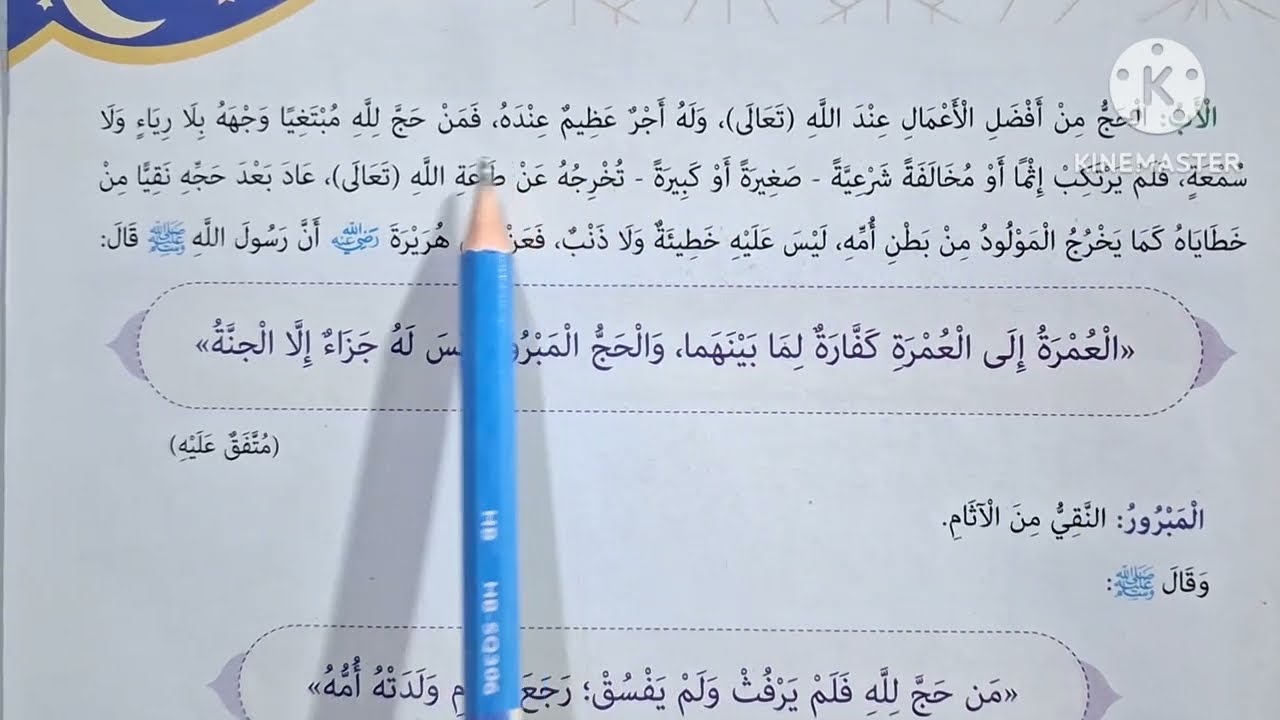 الْأَبُ: الْحَجُّ مِنْ أَفْضَلِ الْأَعْمَالِ عِنْدَ اللَّهِ (تَعَالَى)، وَلَهُ أَجْرٌ عَظِيمٌ عِنْدَهُ، فَمَنْ حَجَّ لِلَّهِ مُبْتَغِيًا وَجْهَهُ بِلَا رِيَاءٍ وَلَا
سُمْعَةٍ، فَلَمْ يَرْتَكِبْ إِثْمًا أَوْ مُخَالَفَةً شَرْعِيَّةً - صَغِيرَةً أَوْ كَبِيرَةً - تُخْرِجُهُ عَنْ طَاعَةِ اللَّهِ (تَعَالَى)، عَادَ بَعْدَ حَجِّهِ نَقِيًّا مِنْ
خَطَايَاهُ كَمَا يَخْرُجُ الْمَوْلُودُ مِنْ بَطْنِ أُمِّهِ، لَيْسَ عَلَيْهِ خَطِيئَةٌ وَلَا ذَنْبٌ، فَعَنْ هُرَيْرَةَ رَضِيَ اللَّهُ عَنْهُ أَنَّ رَسُولَ اللَّهِ ﷺ قَالَ:
«الْعُمْرَةُ إِلَى الْعُمْرَةِ كَفَّارَةٌ لِمَا بَيْنَهَما، وَالْحَجُّ الْمَبْرُورُ لَيْسَ لَهُ جَزَاءٌ إِلَّا الْجنَّةُ»
(مُتَّفَقٌ عَلَيْهِ)
الْمَبْرُورُ: النَّقِيُّ مِنَ الْآثَامِ.
وَقَالَ ﷺ:
«مَن حَجَّ لِلَّهِ فَلَمْ يَرْفُثْ وَلَمْ يَفْسُقْ؛ رَجَعَ وَلَدَتْهُ أُمُّهُ»
K
KINEMASTER
HB
HB-SQ306